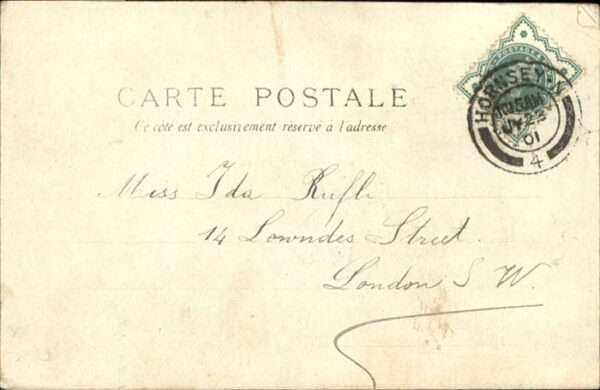 POSTAGE
HORNSEY·N
JY 23
01
4
CARTE POSTALE
Ce côté est exclusivement réservé à l'adresse
Miss Ida Rufli
14 Lowndes Street.
London S W.